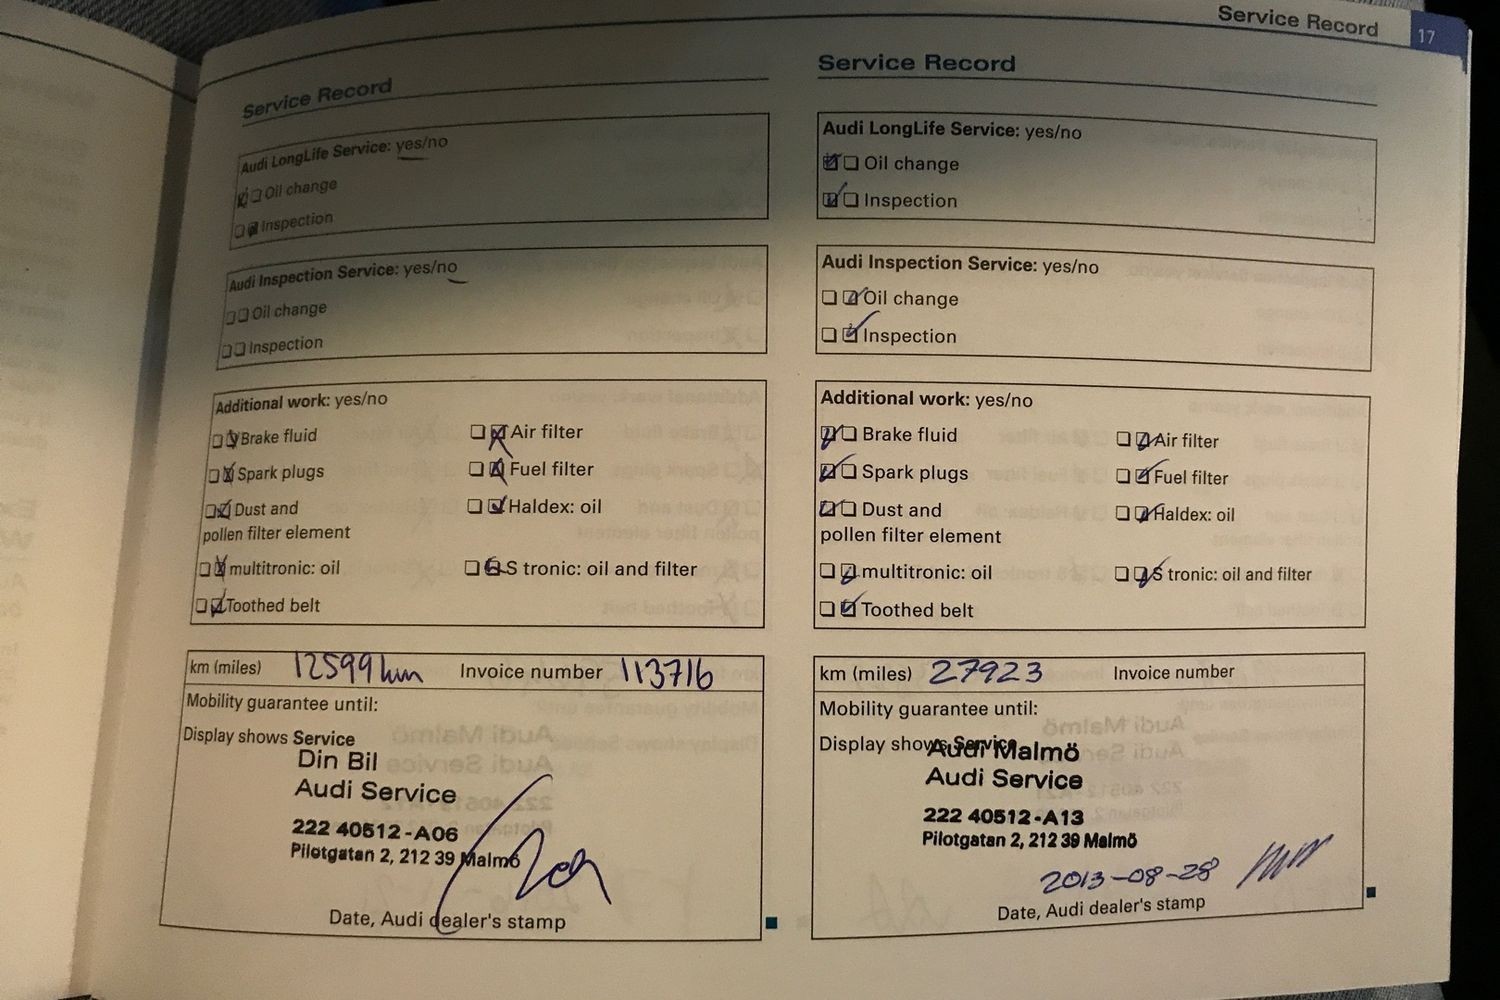 Service Record 17
Service Record
Audi LongLife Service: yes/no
Oil change
Inspection
Audi Inspection Service: yes/no
Oil change
Inspection
Additional work: yes/no
Brake fluid Air filter
Spark plugs Fuel filter
Dust and Haldex: oil
pollen filter element
multitronic: oil S tronic: oil and filter
Toothed belt
km (miles) 12599 km Invoice number 113716
Mobility guarantee until:
Display shows Service
Din Bil
Audi Service
222 40512-A06
Pilotgatan 2, 212 39 Malmö
Date, Audi dealer's stamp
Service Record
Audi LongLife Service: yes/no
Oil change
Inspection
Audi Inspection Service: yes/no
Oil change
Inspection
Additional work: yes/no
Brake fluid Air filter
Spark plugs Fuel filter
Dust and Haldex: oil
pollen filter element
multitronic: oil S tronic: oil and filter
Toothed belt
km (miles) 27923 Invoice number
Mobility guarantee until:
Display shows Service
Audi Malmö
Audi Service
222 40512-A13
Pilotgatan 2, 212 39 Malmö
2013-08-28
Date, Audi dealer's stamp